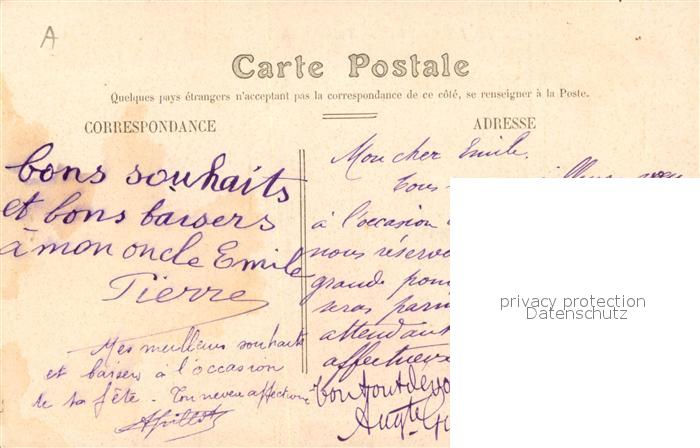 A
Carte Postale
Quelques pays étrangers n'acceptant pas la correspondance de ce côté, se renseigner à la Poste.
CORRESPONDANCE
bons souhaits
et bons baisers
à mon oncle Emile
Pierre
Mes meilleurs souhaits
et baisers à l'occasion
de ta fête. Ton neveu affectionné
ADRESSE
Mon cher Emile.
Tous
à l'occasion
nous
grande
seras parmi
attendant
privacy protection
Datenschutz